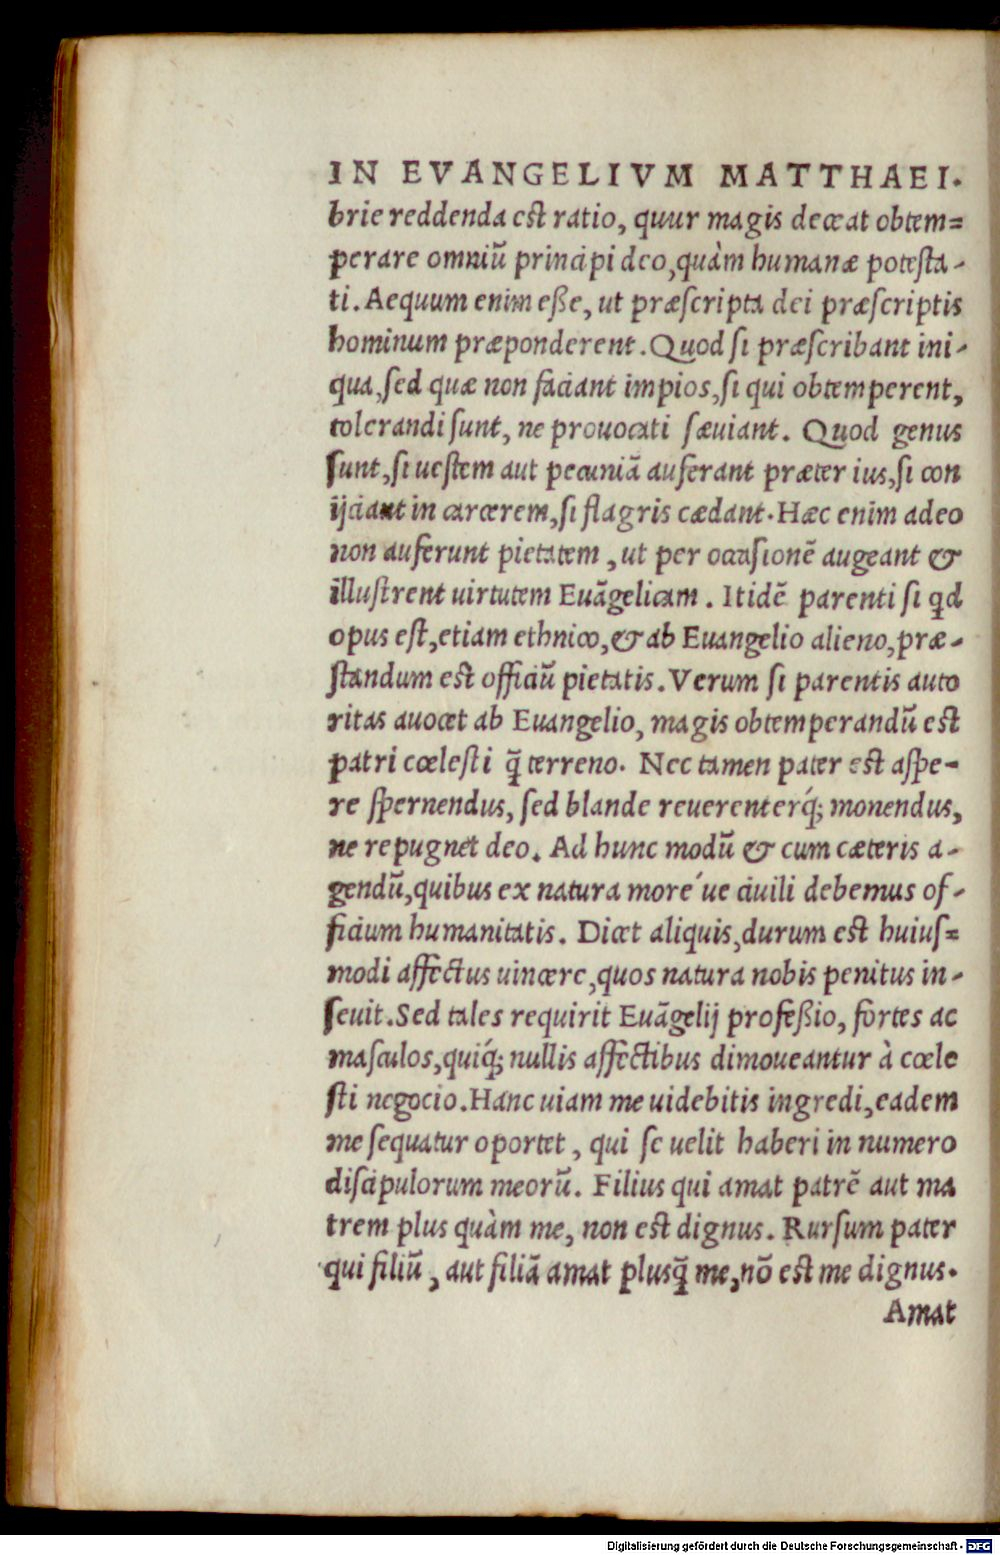 IN EVANGELIVM MATTHAEI.
brie reddenda est ratio, quur magis deceat obtem=
perare omniũ principi deo, quàm humanæ potesta-
ti. Aequum enim eße, ut præscripta dei præscriptis
hominum præponderent. Quod si præscribant ini-
qua, sed quæ non faciant impios, si qui obtemperent,
tolerandi sunt, ne prouocati sæuiant. Quod genus
sunt, si uestem aut pecuniã auferant præter ius, si con
ijciant in carcerem, si flagris cædant. Hæc enim adeo
non auferunt pietatem, ut per occasionẽ augeant &
illustrent uirtutem Euãgelicam. Itidẽ parenti si qd
opus est, etiam ethnico, & ab Euangelio alieno, præ-
standum est officiũ pietatis. Verum si parentis auto
ritas auocet ab Euangelio, magis obtemperandũ est
patri cœlesti q̃ terreno. Nec tamen pater est aspe-
re spernendus, sed blande reuerenterq́; monendus,
ne repugnet deo. Ad hunc modũ & cum cæteris a-
gendũ, quibus ex natura more´ue ciuili debemus of-
ficium humanitatis. Dicet aliquis, durum est huius=
modi affectus uincere, quos natura nobis penitus in-
seuit. Sed tales requirit Euãgelij profeßio, fortes ac
masculos, quiq́; nullis affectibus dimoueantur à cœle
sti negocio. Hanc uiam me uidebitis ingredi, eadem
me sequatur oportet, qui se uelit haberi in numero
discipulorum meorũ. Filius qui amat patrẽ aut ma
trem plus quàm me, non est dignus. Rursum pater
qui filiũ, aut filiã amat plusq̃ me, nõ est me dignus.
Amat
Digitalisierung gefördert durch die Deutsche Forschungsgemeinschaft - DFG